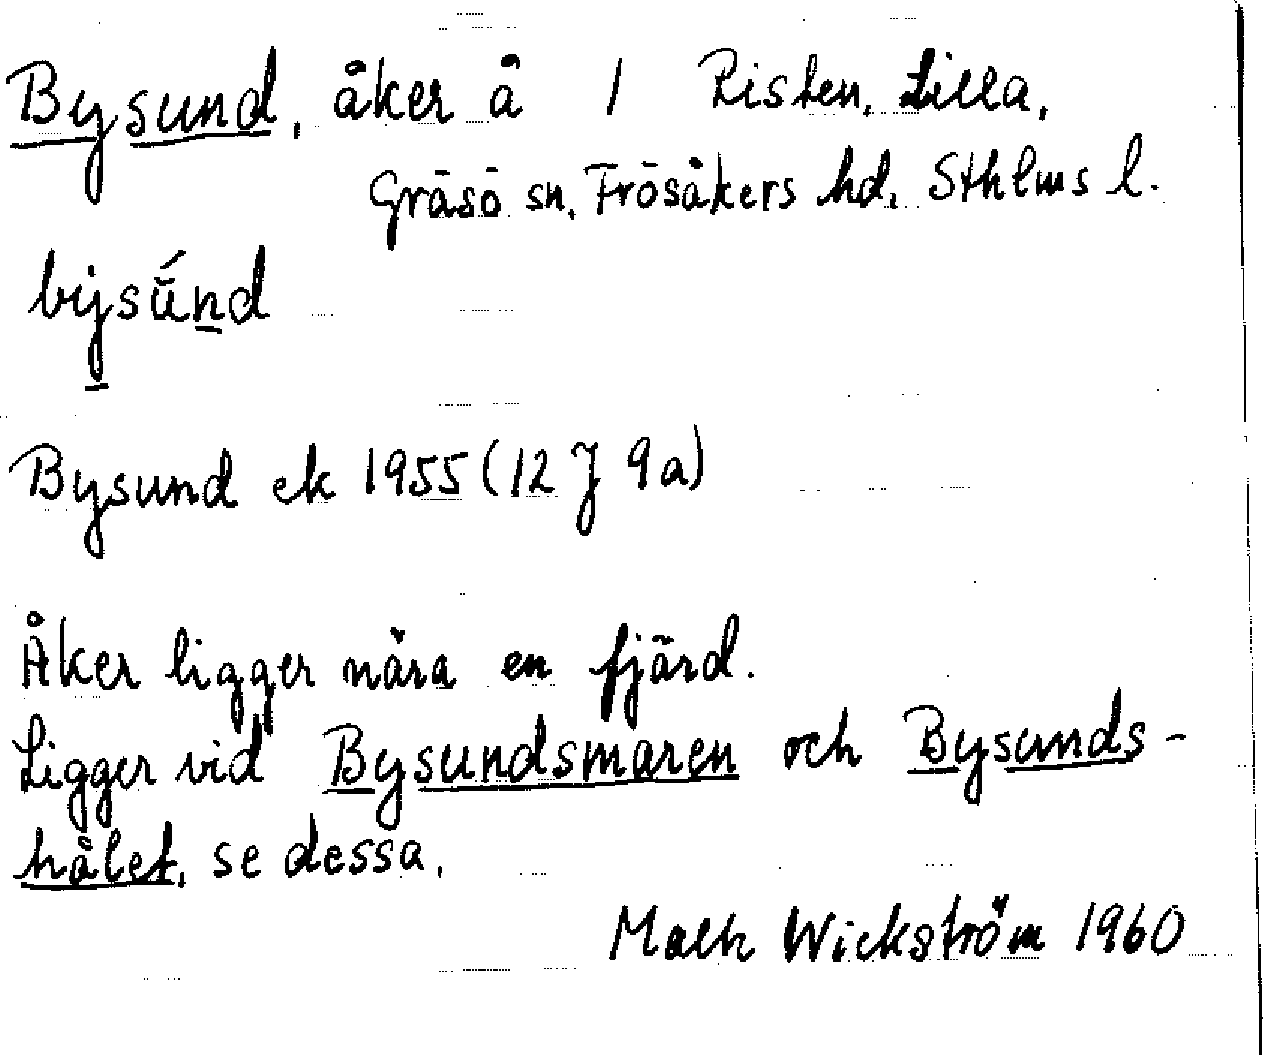 Bysund, åker å 1 Risten, Lilla,
Gräsö sn, Frösåkers hd, Sthlms l.
bysúnd
Bysund ek 1955 (12 J 9 a)
Åker ligger nära en fjärd.
Ligger vid Bysundsmaren och Bysunds-
hålet, se dessa.
Wickström 1960